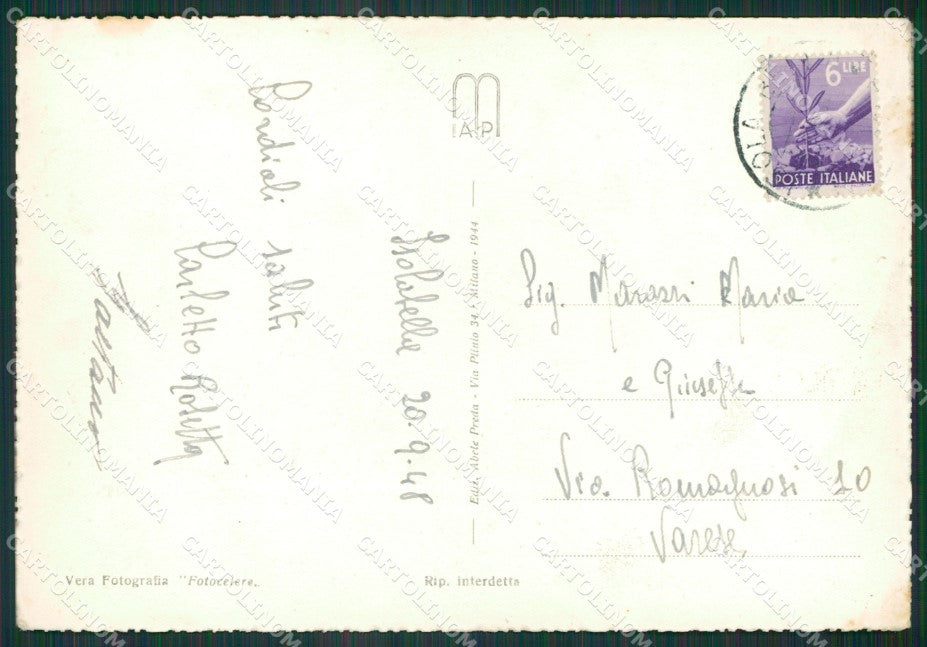 Cordiali
saluti
Carletto Rosetta
Gaetano
Isolabella 20.9.48
AP
Ediz. Abele Preda - Via Plinio 34, Milano - 1944
6 LIRE
POSTE ITALIANE
Sig. Marassi Maria
e Giuseppe
Via Romagnosi 10
Varese
Vera Fotografia "Fotocelere„
Rip. interdetta
CARTOLINOMANIA